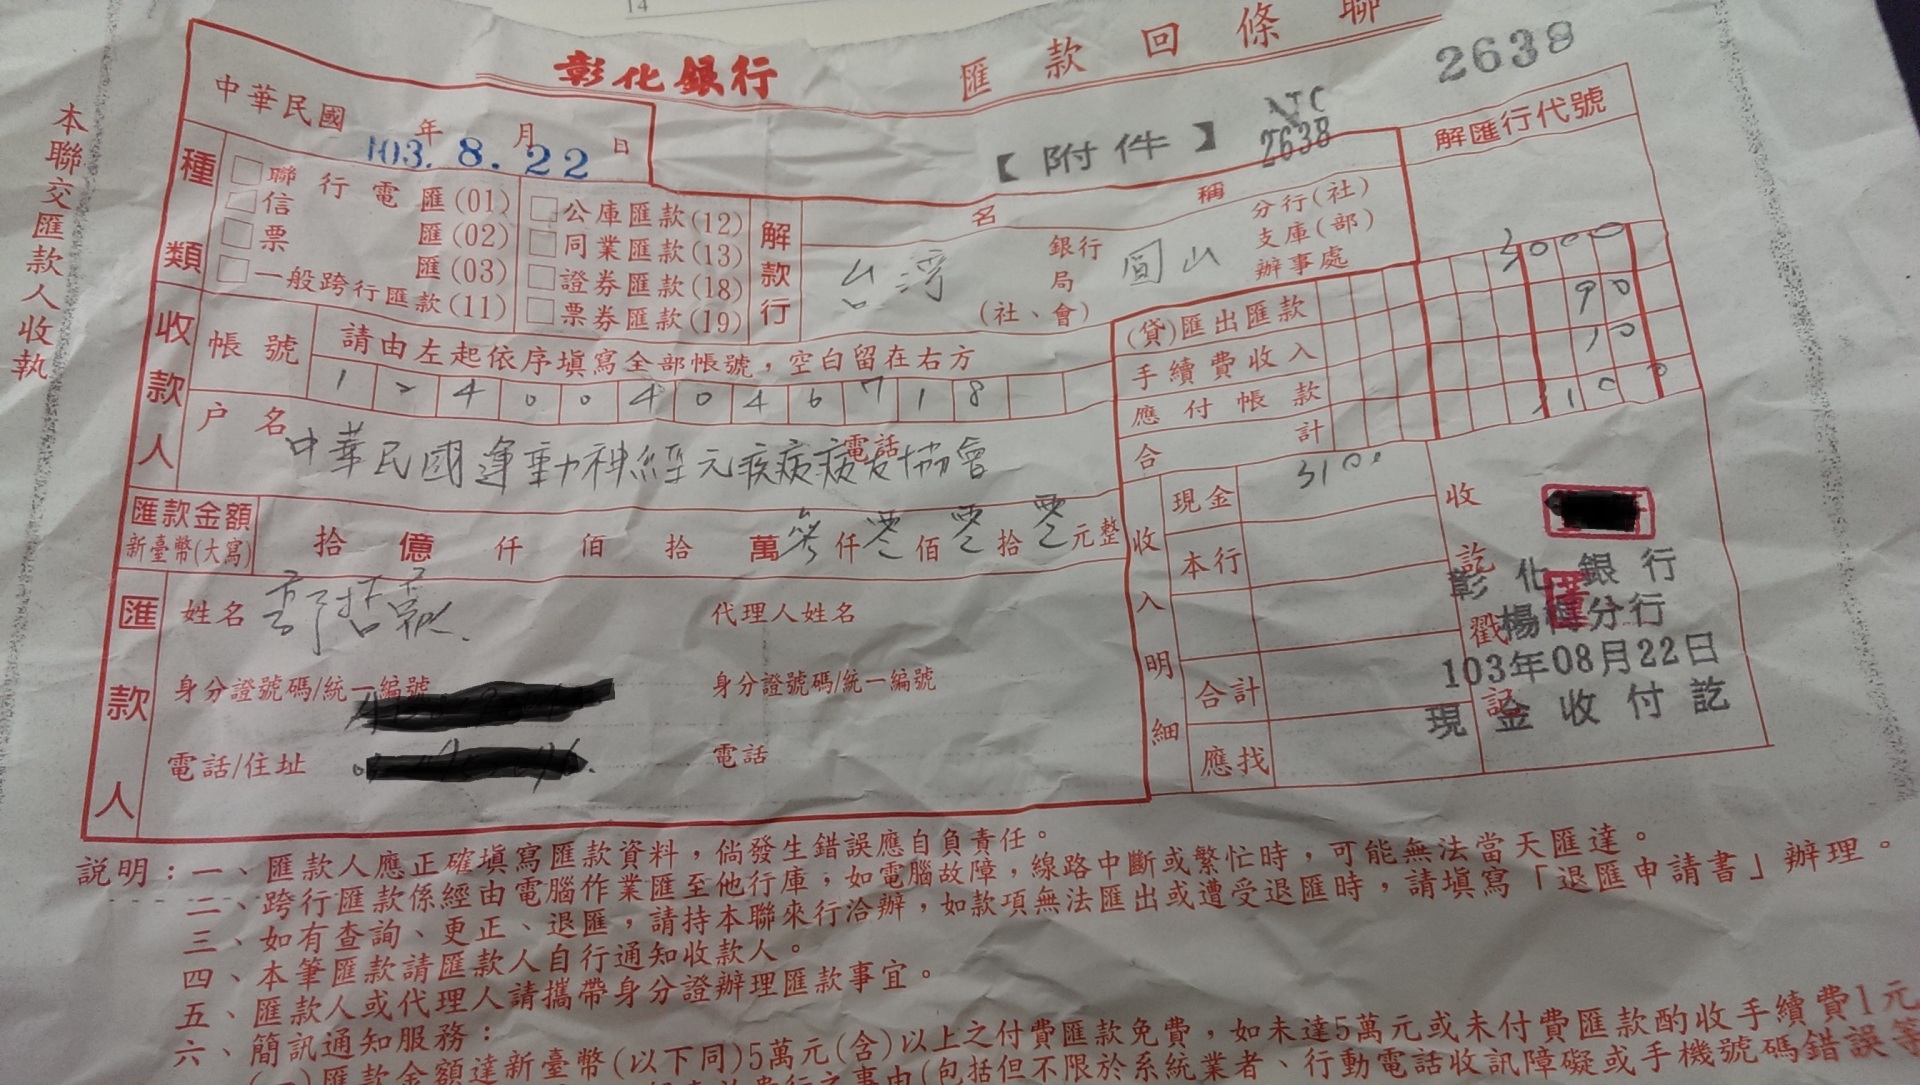 14
彰化銀行 匯款回條聯
2638
本聯交匯款人收執
中華民國 年 月 日
103. 8. 22
【附件】
NTC
2638
解匯行代號
種類
聯行電匯(01)
信匯(02)
票匯(03)
一般跨行匯款(11)
公庫匯款(12)
同業匯款(13)
證券匯款(18)
票券匯款(19)
解款行
名稱
台灣 銀行 局 (社、會) 圓山 分行(社) 支庫(部) 辦事處
收款人
帳號 請由左起依序填寫全部帳號，空白留在右方
1 2 4 0 0 4 0 4 6 7 1 8
戶名 中華民國運動神經元疾病病友協會
電話
(貸)匯出匯款 3000
手續費收入 90
應付帳款 10
合計 3100
匯款金額
新臺幣(大寫)
拾 億 仟 佰 拾 萬 參 仟 零 佰 零 拾 零 元整
匯款人
姓名
代理人姓名
身分證號碼/統一編號
身分證號碼/統一編號
電話/住址
電話
收入明細
現金 3100
本行
合計
應找
收訖戳記
彰化銀行
楊梅分行
103年08月22日
現金收付訖
説明：一、匯款人應正確填寫匯款資料，倘發生錯誤應自負責任。
二、跨行匯款係經由電腦作業匯至他行庫，如電腦故障，線路中斷或繁忙時，可能無法當天匯達。
三、如有查詢、更正、退匯，請持本聯來行洽辦，如款項無法匯出或遭受退匯時，請填寫「退匯申請書」辦理。
四、本筆匯款請匯款人自行通知收款人。
五、匯款人或代理人請攜帶身分證辦理匯款事宜。
六、簡訊通知服務：
(一)匯款金額達新臺幣(以下同)5萬元(含)以上之付費匯款免費，如未達5萬元或未付費匯款酌收手續費1元
之事由(包括但不限於系統業者、行動電話收訊障礙或手機號碼錯誤等